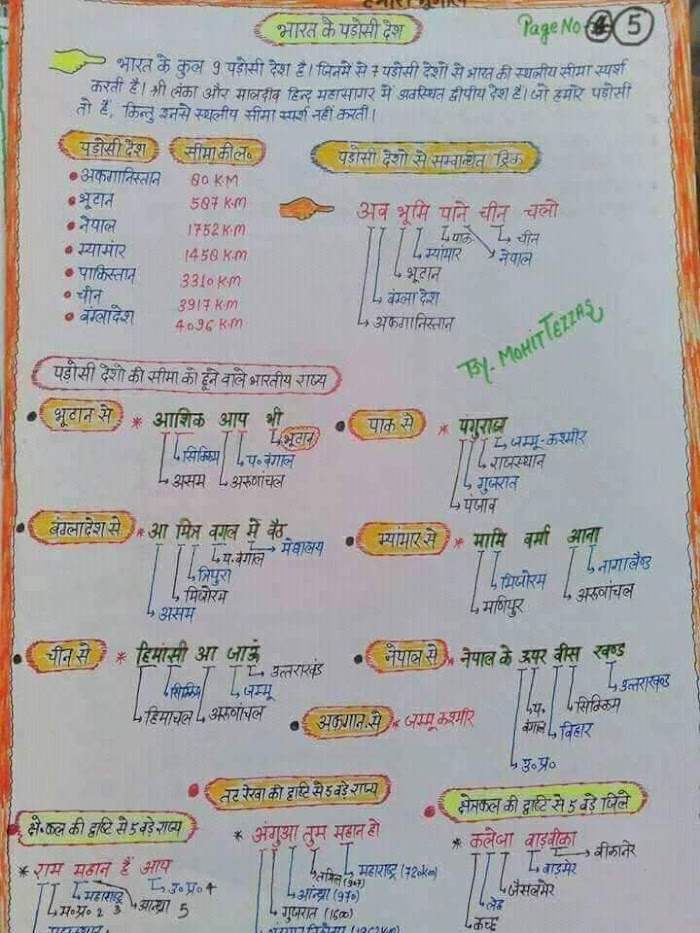 हमारा भूगोल
भारत के पड़ोसी देश
Page No 5
भारत के कुल 9 पड़ोसी देश है। जिनमे से 7 पड़ोसी देशो से भारत की स्थलीय सीमा स्पर्श
करती है। श्री लंका और मालदीव हिन्द महासागर में अवस्थित द्वीपीय देश है। जो हमारे पड़ोसी
तो है, किन्तु इनसे स्थलीय सीमा स्पर्श नहीं करती।
पड़ोसी देश सीमा की ल॰ पड़ोसी देशो से सम्बन्धित ट्रिक
अफगानिस्तान 80 K.M
भूटान 587 K.M
नेपाल 1752 K.M
म्यामांर 1458 K.M
पाकिस्तान 3310 K.M
चीन 3917 K.M
बंग्लादेश 4096 K.M
अब भूमि पाने चीन चलो
पाक चीन
म्यांमार नेपाल
भूटान
बंग्ला देश
अफगानिस्तान
By- MOHIT TEZZAS
पड़ोसी देशो की सीमा को छूने वाले भारतीय राज्य
भूटान से * आशिक आप भी
भूटान
सिक्किम प॰ बंगाल
असम अरुणांचल
पाक से * पंगुराज
जम्मू-कश्मीर
राजस्थान
गुजरात
पंजाब
बंग्लादेश से * आ मित्र बगल मे बैठ
प॰ बंगाल मेघालय
त्रिपुरा
मिजोरम
असम
म्यांमार से * मामि बर्मा आना
मिजोरम नागालैण्ड
मणिपुर अरुणांचल
चीन से * हिमांसी आ जाऊं
उत्तराखंड
सिक्किम जम्मू
हिमाचल अरुणांचल
नेपाल से * नेपाल के ऊपर बीस खण्ड
उत्तराखण्ड
प॰ बंगाल सिक्किम
बिहार
उ॰ प्र॰
अफगान से * जम्मू कश्मीर
क्षे॰ फल की दृष्टि से 5 बड़े राज्य
* राम महान हैं आप
महाराष्ट्र 3 उ॰ प्र॰ 4
म॰ प्र॰ 2 आन्ध्रा 5
तट रेखा की दृष्टि से 5 बड़े राज्य
* अंगुआ तुम महान हो
महाराष्ट्र (720km)
आंन्ध्रा (970)
गुजरात (1600)
क्षेत्रफल की दृष्टि से 5 बड़े जिले
* कलेजा बाड़बीका
बीकानेर
बाड़मेर
जैसलमेर
लेह
कच्छ